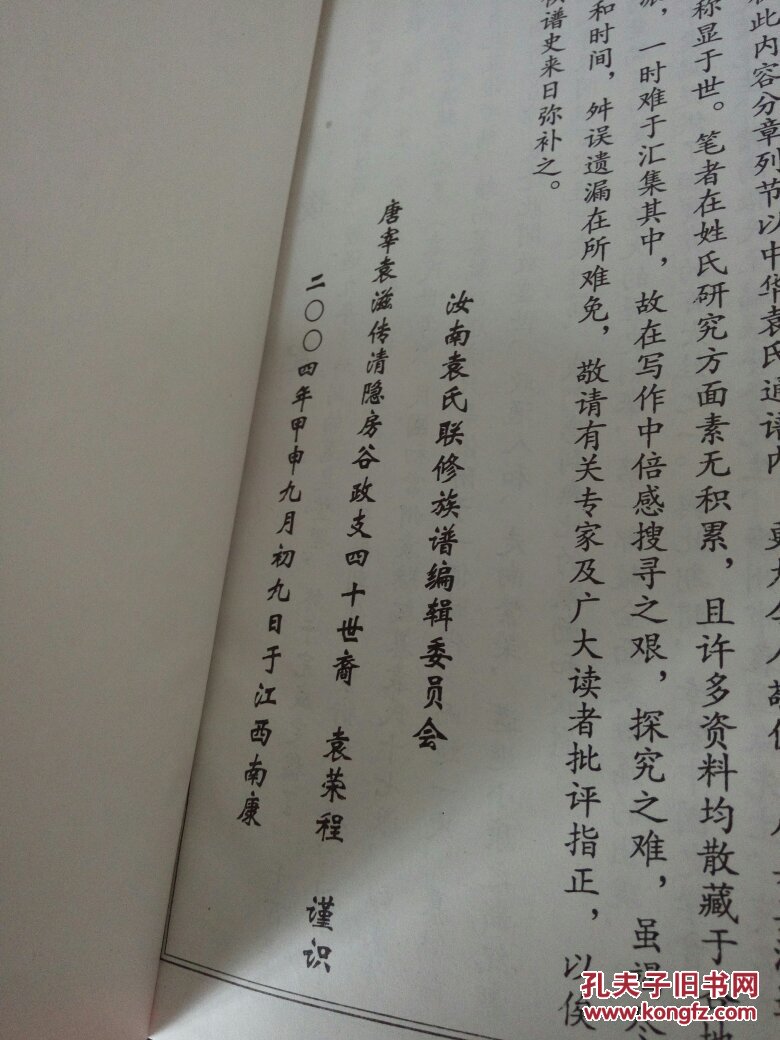 此内容分章列节以中华袁氏通谱内
称显于世。笔者在姓氏研究方面素无积累，且许多资料均散藏于
一时难于汇集其中，故在写作中倍感搜寻之艰，探究之难，虽
和时间，舛误遗漏在所难免，敬请有关专家及广大读者批评指正，以俟
谱史来日弥补之。
汝南袁氏联修族谱编辑委员会
唐宰袁滋传清隐房谷政支四十世裔 袁荣程 谨识
二〇〇四年甲申九月初九日于江西南康
孔夫子旧书网
www.kongfz.com